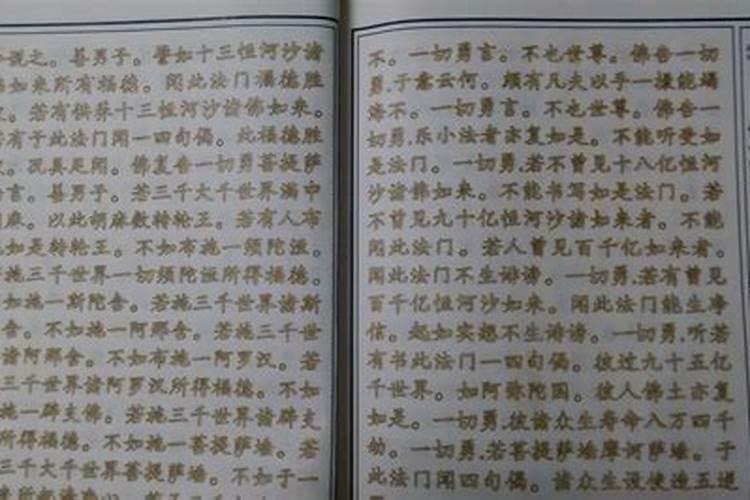 说之。善男子。譬如十三恒河沙诸
如来所有福德。闻此法门福德胜
。若有供养十三恒河沙诸佛如来。
有于此法门闻一四句偈。此福德胜
。况具足闻。佛复告一切勇菩提萨
言。善男子。若三千大千世界满中
麻。以此胡麻数转轮王。若有人布
如是转轮王。不如布施一须陀洹。
施三千世界一切须陀洹所得福德。
如施一斯陀含。若施三千世界诸斯
含。不如施一阿那含。若施三千世
诸阿那含。不如布施一阿罗汉。若
三千世界诸阿罗汉所得福德。不如
施一辟支佛。若施三千世界诸辟支
所得福德。不如施一菩提萨埵。若
三千大千世界菩提萨埵。不如于一
不。一切勇言。不也世尊。佛告一切
勇,于意云何。颇有凡夫以手一掬能竭
海不。一切勇言。不也世尊。佛告一
切勇,乐小法者亦复如是。不能听受如
是法门。一切勇,若不曾见十八亿恒河
沙诸佛如来。不能书写如是法门。若
不曾见九十亿恒河沙诸如来者。不能
闻此法门。若人曾见百千亿如来者。
闻此法门不生诽谤。一切勇,若有曾见
百千亿恒河沙如来。闻此法门能生净
信。起如实想不生诽谤。一切勇,听若
有书此法门一四句偈。彼过九十五亿
千世界。如阿弥陀国。彼人佛土亦复
如是。一切勇,彼诸众生寿命八万四千
劫。一切勇,若菩提萨埵摩诃萨埵。于
此法门闻四句偈。诸众生设使造五逆